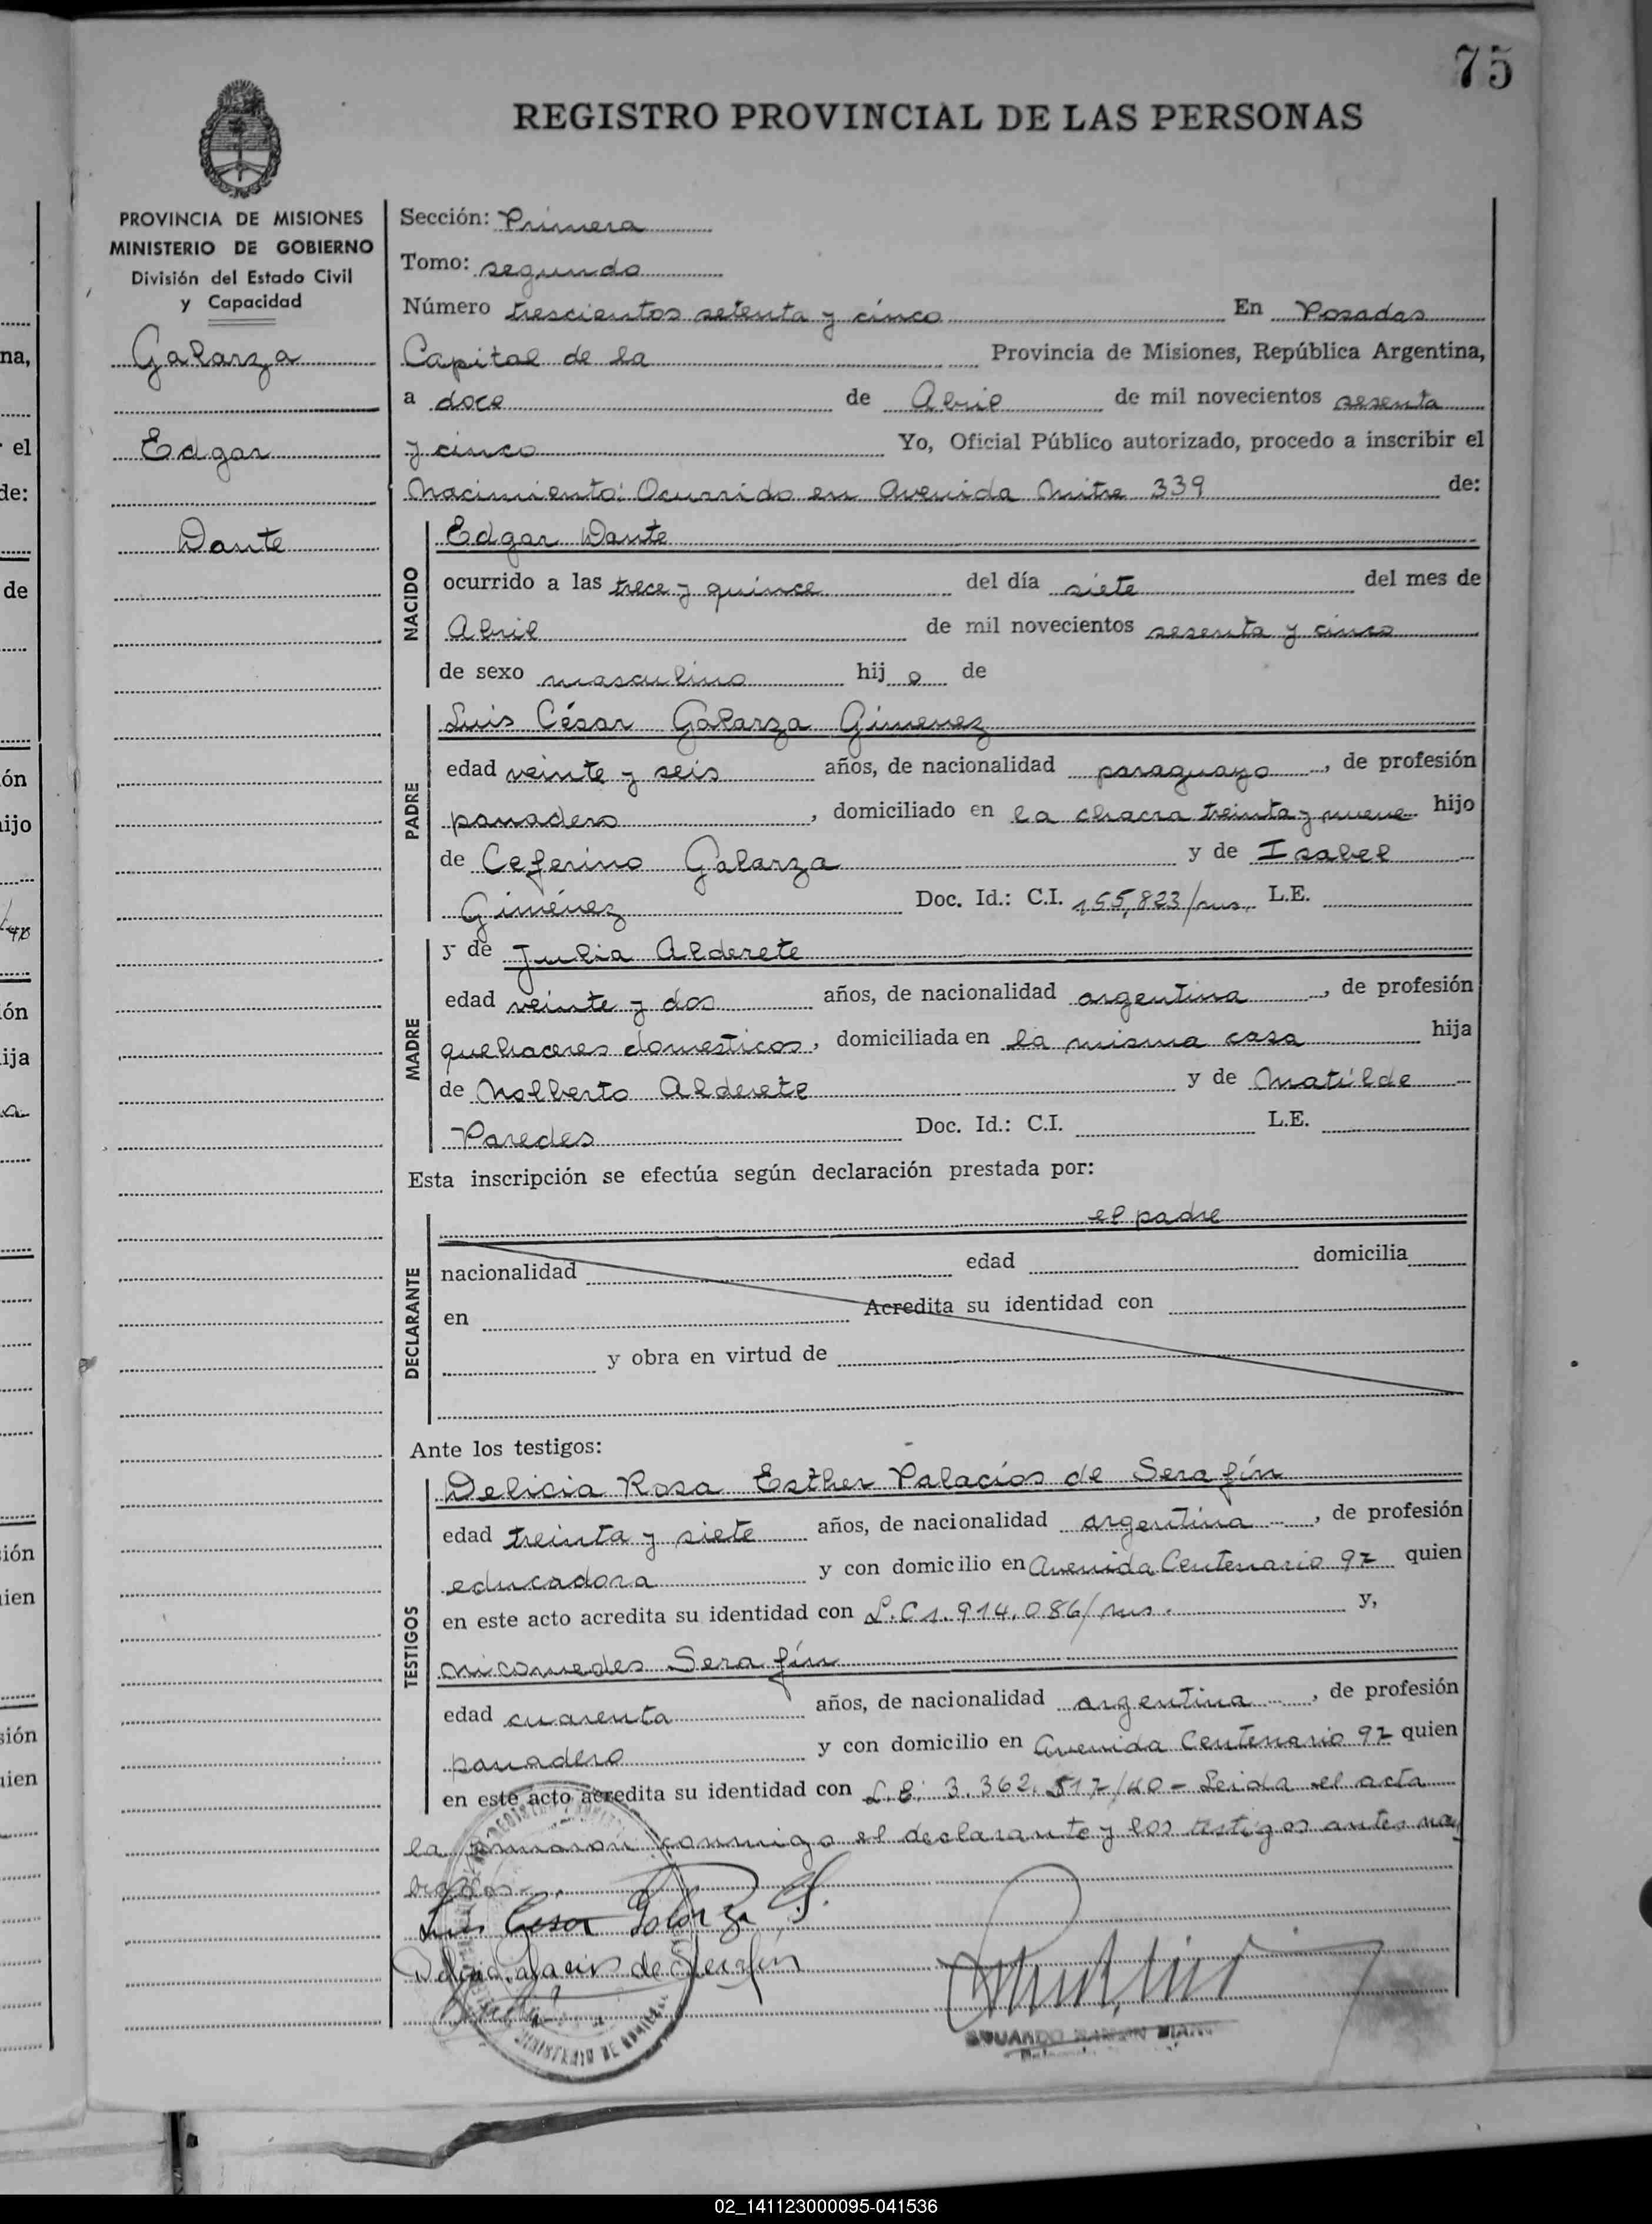 75
REGISTRO PROVINCIAL DE LAS PERSONAS
PROVINCIA DE MISIONES
MINISTERIO DE GOBIERNO
División del Estado Civil
y Capacidad
Galarza
Edgar
Dante
Sección: Primera
Tomo: segundo
Número trescientos setenta y cinco En Posadas
Capital de la Provincia de Misiones, República Argentina,
a doce de Abril de mil novecientos sesenta
y cinco Yo, Oficial Público autorizado, procedo a inscribir el
Nacimiento: Ocurrido en Avenida Mitre 339 de:
NACIDO
Edgar Dante
ocurrido a las trece y quince del día siete del mes de
Abril de mil novecientos sesenta y cinco
de sexo masculino hij o de
PADRE
Luis César Galarza Gimenez
edad veinte y seis años, de nacionalidad paraguayo, de profesión
panadero, domiciliado en la chacra treinta y nueve hijo
de Ceferino Galarza y de Isabel
Giménez Doc. Id.: C.I. 155,823/ L.E.
MADRE
y de Julia Alderete
edad veinte y dos años, de nacionalidad argentina, de profesión
quehaceres domesticos, domiciliada en la misma casa hija
de Nolberto Alderete y de Matilde
Paredes Doc. Id.: C.I. L.E.
Esta inscripción se efectúa según declaración prestada por:
DECLARANTE
el padre
nacionalidad edad domicilia
en Acredita su identidad con
y obra en virtud de
Ante los testigos:
TESTIGOS
Delicia Rosa Esther Palacios de Serafín
edad treinta y siete años, de nacionalidad argentina, de profesión
educadora y con domicilio en Avenida Centenario 97 quien
en este acto acredita su identidad con L.C 1.914.086/ y,
Nicomedes Serafín
edad cuarenta años, de nacionalidad argentina, de profesión
panadero y con domicilio en Avenida Centenario 97 quien
en este acto acredita su identidad con L.E: 3.362.517/40 - Leida el acta
la firmaron conmigo el declarante y los testigos antes nom
brados.-
Luis Cesar Galarza G.
Delicia Palacios de Serafín
EDUARDO RAMON
02_141123000095-041536